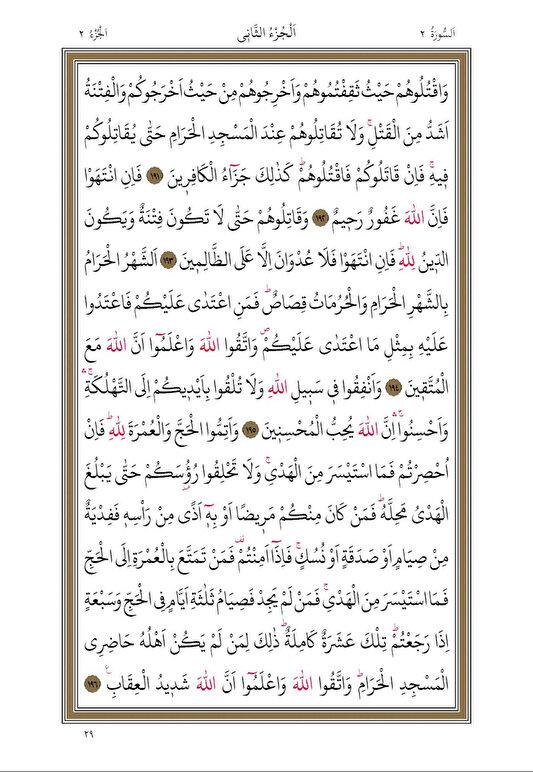 اَلسُّورَةُ ٢ اَلْجُزْءُ الثَّانِي اَلْجُزْءُ ٢
وَاقْتُلُوهُمْ حَيْثُ ثَقِفْتُمُوهُمْ وَاَخْرِجُوهُمْ مِنْ حَيْثُ اَخْرَجُوكُمْ وَالْفِتْنَةُ
اَشَدُّ مِنَ الْقَتْلِۚ وَلَا تُقَاتِلُوهُمْ عِنْدَ الْمَسْجِدِ الْحَرَامِ حَتّٰى يُقَاتِلُوكُمْ
ف۪يهِۚ فَاِنْ قَاتَلُوكُمْ فَاقْتُلُوهُمْۜ كَذٰلِكَ جَزَٓاءُ الْكَافِر۪ينَ ١٩١ فَاِنِ انْتَهَوْا
فَاِنَّ اللّٰهَ غَفُورٌ رَح۪يمٌ ١٩٢ وَقَاتِلُوهُمْ حَتّٰى لَا تَكُونَ فِتْنَةٌ وَيَكُونَ
الدّ۪ينُ لِلّٰهِۜ فَاِنِ انْتَهَوْا فَلَا عُدْوَانَ اِلَّا عَلَى الظَّالِم۪ينَ ١٩٣ اَلشَّهْرُ الْحَرَامُ
بِالشَّهْرِ الْحَرَامِ وَالْحُرُمَاتُ قِصَاصٌۜ فَمَنِ اعْتَدٰى عَلَيْكُمْ فَاعْتَدُوا
عَلَيْهِ بِمِثْلِ مَا اعْتَدٰى عَلَيْكُمْۖ وَاتَّقُوا اللّٰهَ وَاعْلَمُٓوا اَنَّ اللّٰهَ مَعَ
الْمُتَّق۪ينَ ١٩٤ وَاَنْفِقُوا ف۪ي سَب۪يلِ اللّٰهِ وَلَا تُلْقُوا بِاَيْد۪يكُمْ اِلَى التَّهْلُكَةِۚۛ
وَاَحْسِنُواۚۛ اِنَّ اللّٰهَ يُحِبُّ الْمُحْسِن۪ينَ ١٩٥ وَاَتِمُّوا الْحَجَّ وَالْعُمْرَةَ لِلّٰهِۜ فَاِنْ
اُحْصِرْتُمْ فَمَا اسْتَيْسَرَ مِنَ الْهَدْيِۚ وَلَا تَحْلِقُوا رُؤُ۫سَكُمْ حَتّٰى يَبْلُغَ
الْهَدْيُ مَحِلَّهُۜ فَمَنْ كَانَ مِنْكُمْ مَر۪يضًا اَوْ بِه۪ٓ اَذًى مِنْ رَاْسِه۪ فَفِدْيَةٌ
مِنْ صِيَامٍ اَوْ صَدَقَةٍ اَوْ نُسُكٍۚ فَاِذَٓا اَمِنْتُمْ۠ فَمَنْ تَمَتَّعَ بِالْعُمْرَةِ اِلَى الْحَجِّ
فَمَا اسْتَيْسَرَ مِنَ الْهَدْيِۚ فَمَنْ لَمْ يَجِدْ فَصِيَامُ ثَلٰثَةِ اَيَّامٍ فِي الْحَجِّ وَسَبْعَةٍ
اِذَا رَجَعْتُمْۜ تِلْكَ عَشَرَةٌ كَامِلَةٌۜ ذٰلِكَ لِمَنْ لَمْ يَكُنْ اَهْلُهُ حَاضِرِي
الْمَسْجِدِ الْحَرَامِۜ وَاتَّقُوا اللّٰهَ وَاعْلَمُٓوا اَنَّ اللّٰهَ شَد۪يدُ الْعِقَابِ۟ ١٩٦
٢٩